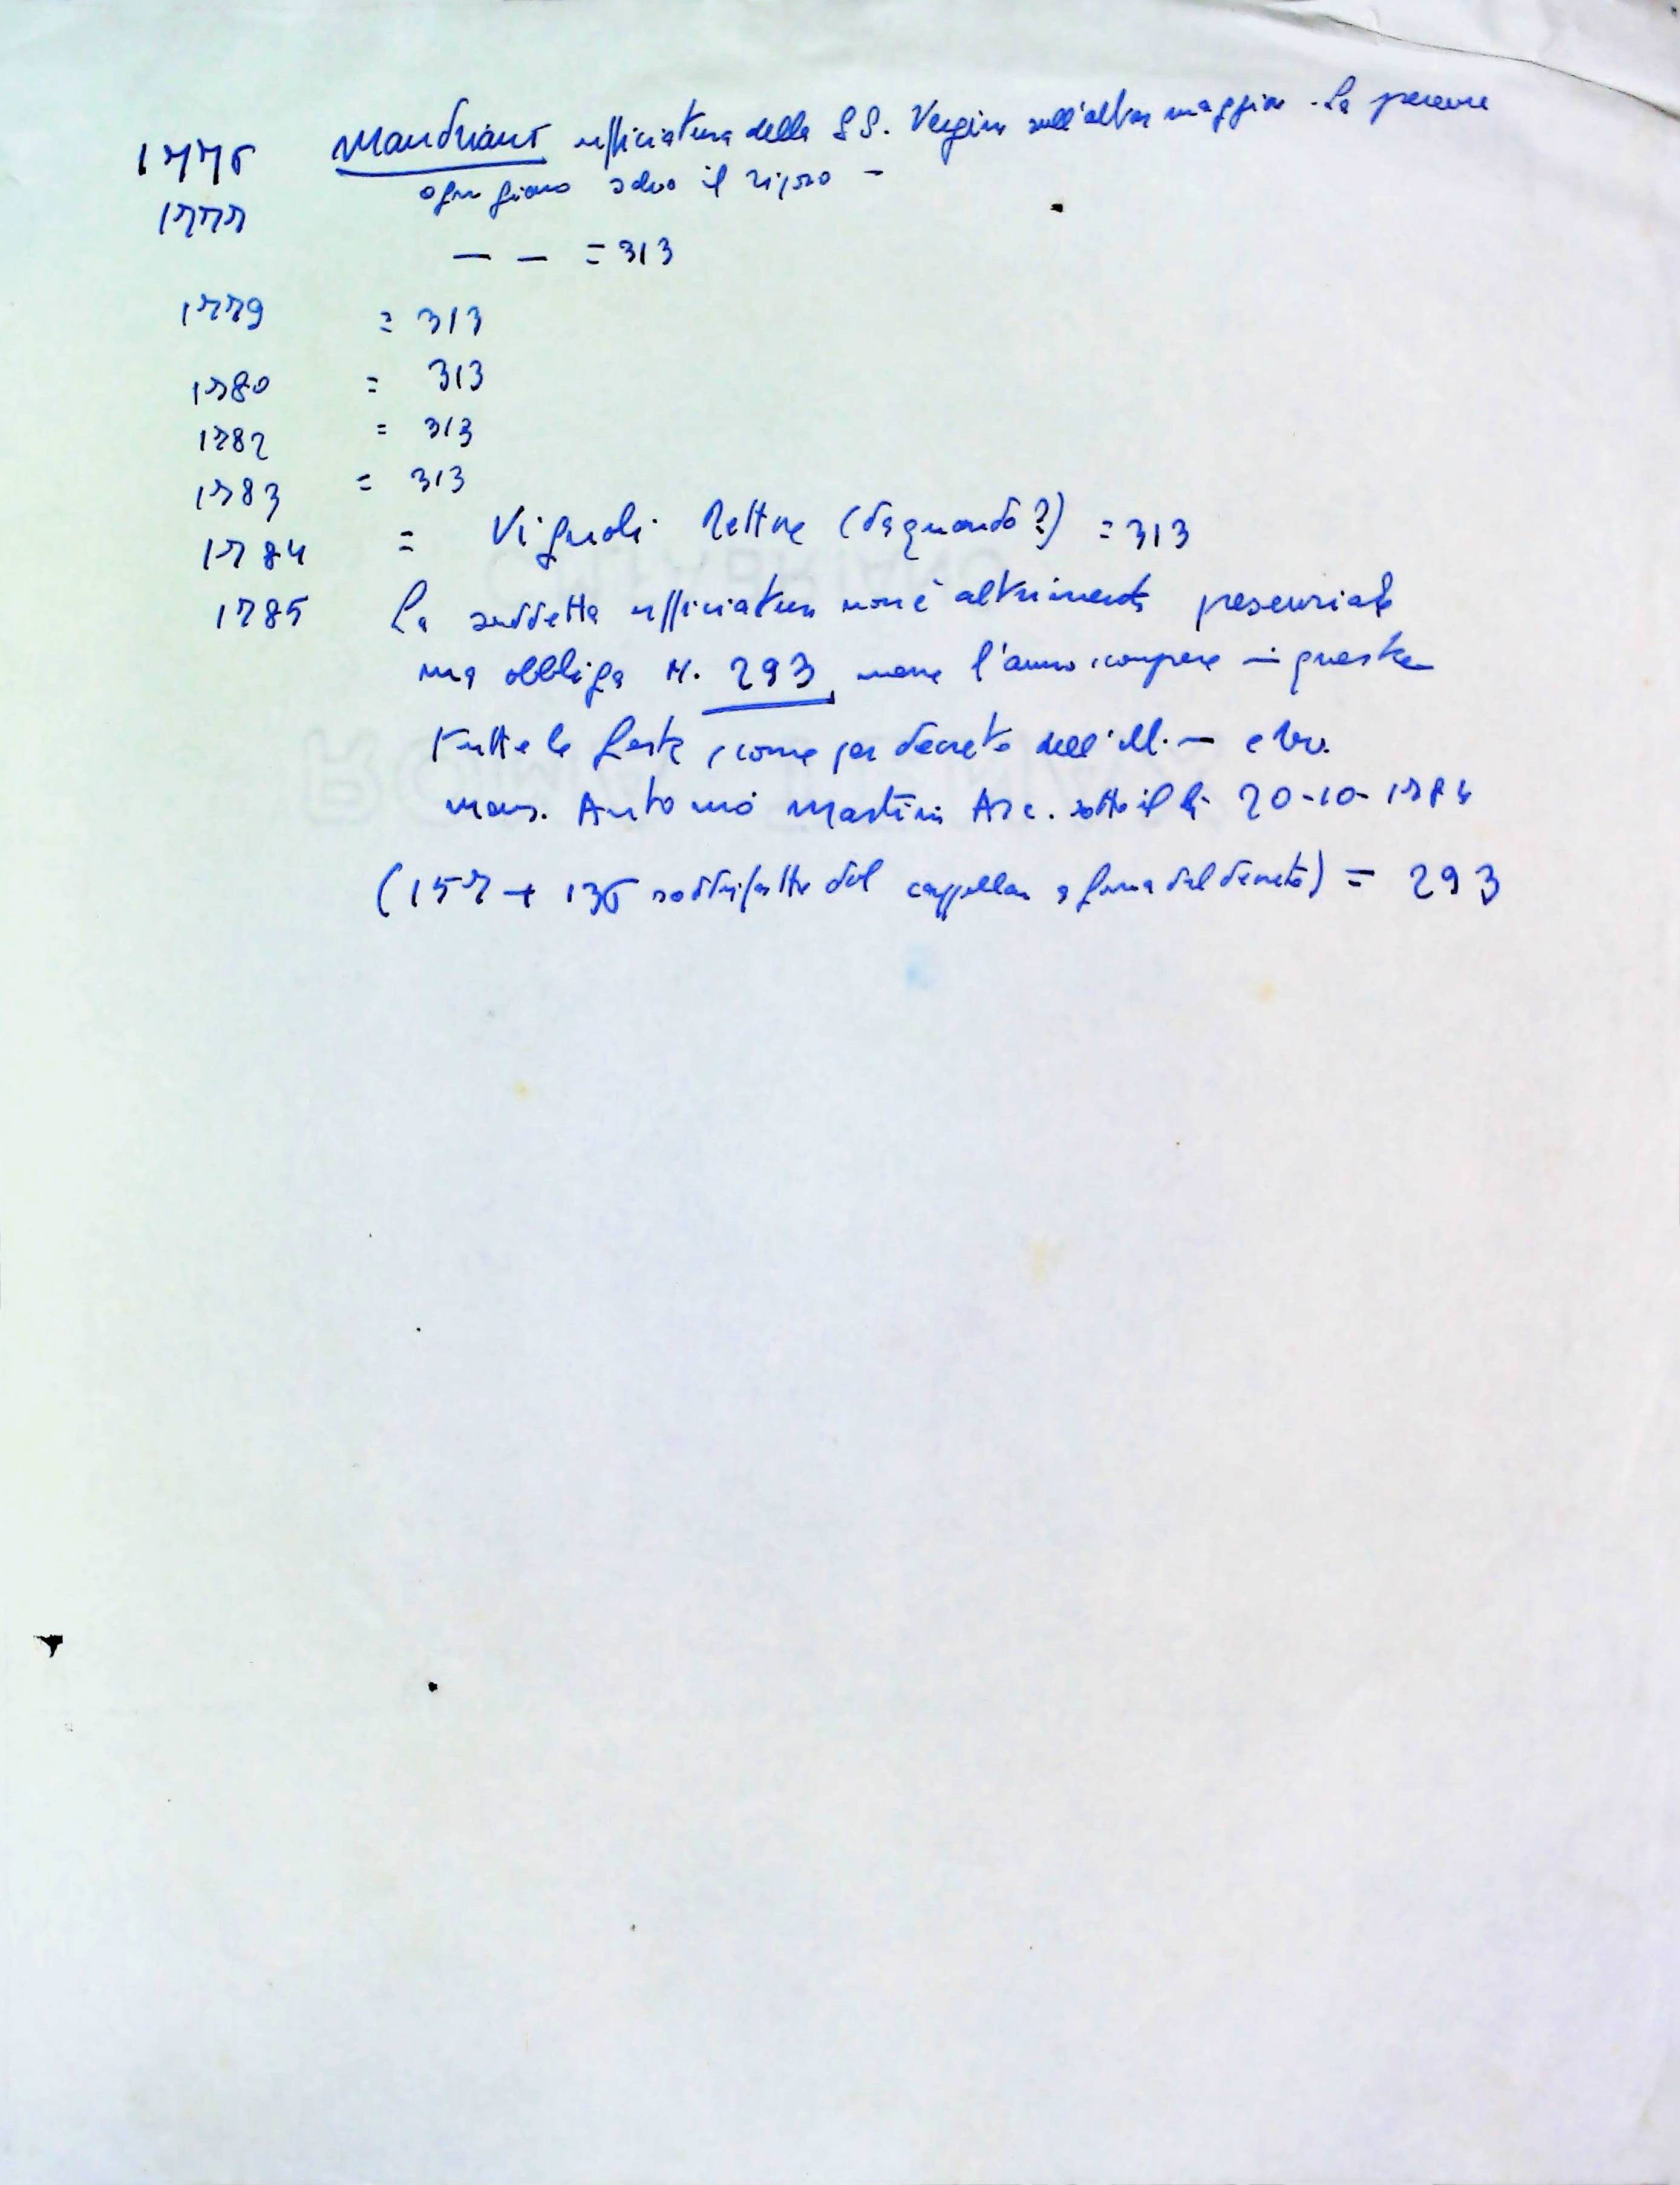 1776 Mandriani ufficiatura della SS. Vergine sull'altar maggior. La
ogni giorno salvo il riposo -
1777
— — = 313
1779 = 313
1780 = 313
1782 = 313
1783 = 313
1784 = Vignoli Rettore (da quando?) = 313
1785 La suddetta ufficiatura non è altrimenti presenziale
ma obbliga N. 293 messe l'anno comprese in queste
tutte le feste, come per decreto dell'Ill. — e
Mons. Antonio Martini Arc. sotto il dì 20-10-1784
(157 + 136 soddisfatte dal cappellan a forma del decreto) = 293